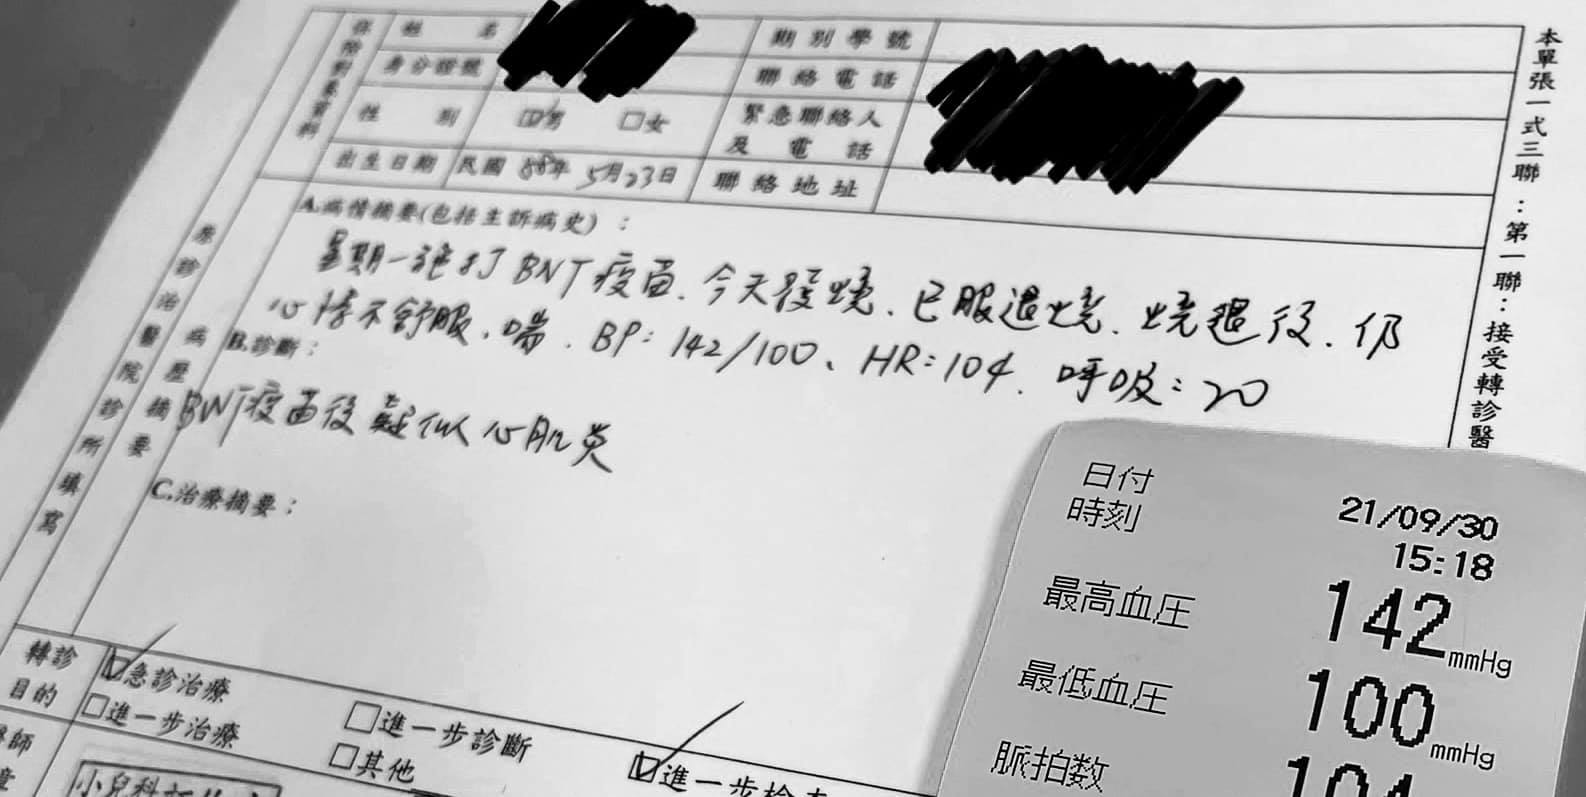 保險對象資料
姓 名
期別學號
身分證號
聯絡電話
性 別
男 □女
緊急聯絡人
及 電 話
出生日期
民國 88年 5月23日
聯絡地址
本單張一式三聯：第一聯：接受轉診醫
原診治醫院診所填寫
病歷摘要
A.病情摘要(包括主訴病史)：
星期一施打BNT疫苗、今天發燒、已服退燒、燒退後、仍
心悸不舒服、喘、BP：142/100、HR：104、呼吸：20
B.診斷：
BNT疫苗後疑似心肌炎
C.治療摘要：
轉診
目的
☑急診治療
□進一步治療
□進一步診斷
□其他
☑進一步檢查
日付 21/09/30
時刻 15:18
最高血圧 142mmHg
最低血圧 100mmHg
脈拍数 104